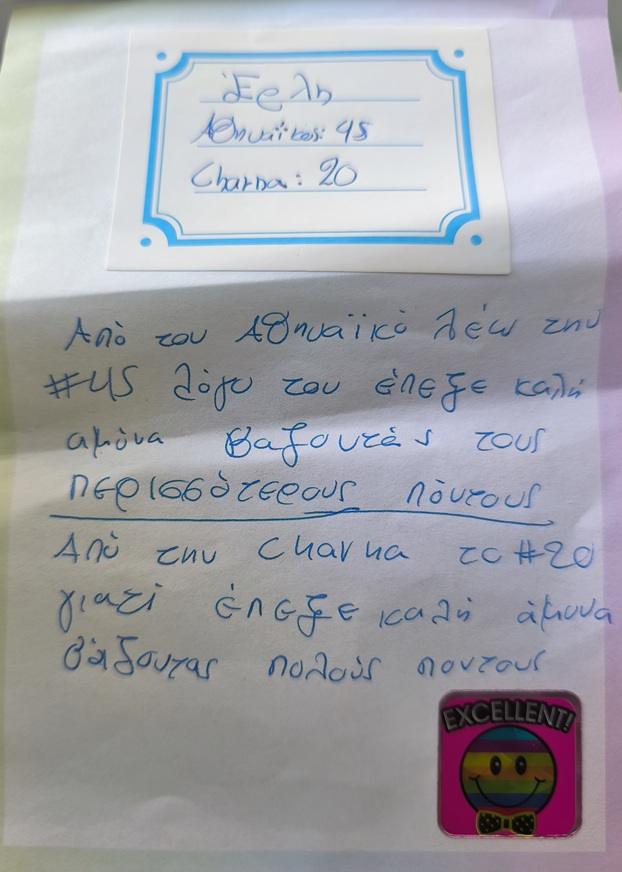 Έρλη
Αθηναϊκος: 45
Charna: 20
Από του Αθηναϊκό λέω την
#45 λόγο του έπεξε καλή
αμύνα βαζοντάς τους
περισσότερους πόντους
Από την Charna το #20
γιατί έπεξε καλή άμυνα
βάζοντας πολούς ποντους
EXCELLENT!